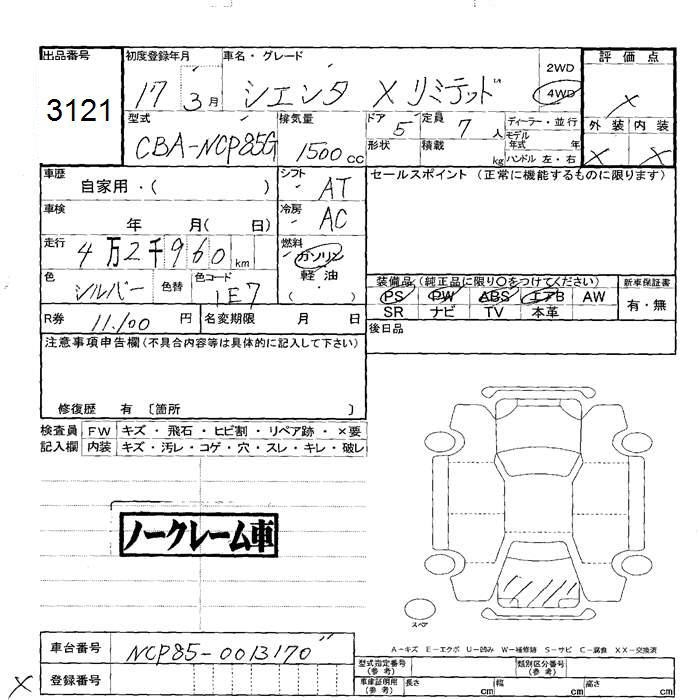 出品番号 初度登録年月 車名・グレード 評価点
3121 17 3月 シエンタ Xリミテッド 2WD 4WD X
型式 排気量 ドア 定員 ディーラー・並行 外装 内装
CBA-NCP85G 1500cc 5 7人 モデル年式 年 X X
形状 積載 kg ハンドル 左・右
車歴 自家用・( ) シフト AT セールスポイント (正常に機能するものに限ります)
車検 年 月( 日) 冷房 AC
走行 4万2千960km 燃料 ガソリン 軽油 ( )
色 シルバー 色替 色コード 1E7
装備品 (純正品に限り○をつけてください) 新車保証書
PS PW ABS エアB AW 有・無
SR ナビ TV 本革
R券 11,100円 名変期限 月 日 後日品
注意事項申告欄(不具合内容等は具体的に記入して下さい)
修復歴 有 〔箇所 〕
検査員 FW キズ・飛石・ヒビ割・リペア跡・×要
記入欄 内装 キズ・汚レ・コゲ・穴・スレ・キレ・破レ
ノークレーム車
スペア
車台番号 NCP85-0013170
A-キズ E-エクボ U-凹み W-補修跡 S-サビ C-腐食 XX-交換済
型式指定番号 (参考) 類別区分番号 (参考)
X 登録番号 車庫証明用 (参考) 長さ cm 幅 cm 高さ cm